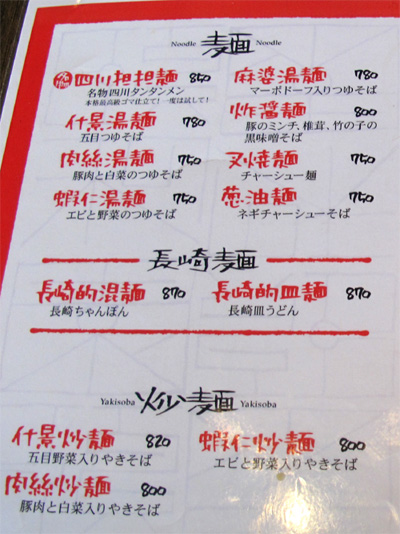 Noodle 麺 Noodle
四川担担麺 850
名物四川タンタンメン
本格最高級ゴマ仕立て！一度は試して！
什景湯麺 780
五目つゆそば
肉絲湯麺 750
豚肉と白菜のつゆそば
蝦仁湯麺 750
エビと野菜のつゆそば
麻婆湯麺 780
マーボドーフ入りつゆそば
炸醤麺 800
豚のミンチ、椎茸、竹の子の
黒味噌そば
叉焼麺 750
チャーシュー麺
葱油麺 750
ネギチャーシューそば
長崎麺
長崎的混麺 870
長崎ちゃんぽん
長崎的皿麺 870
長崎皿うどん
Yakisoba 炒麺 Yakisoba
什景炒麺 820
五目野菜入りやきそば
肉絲炒麺 800
豚肉と白菜入りやきそば
蝦仁炒麺 800
エビと野菜入りやきそば